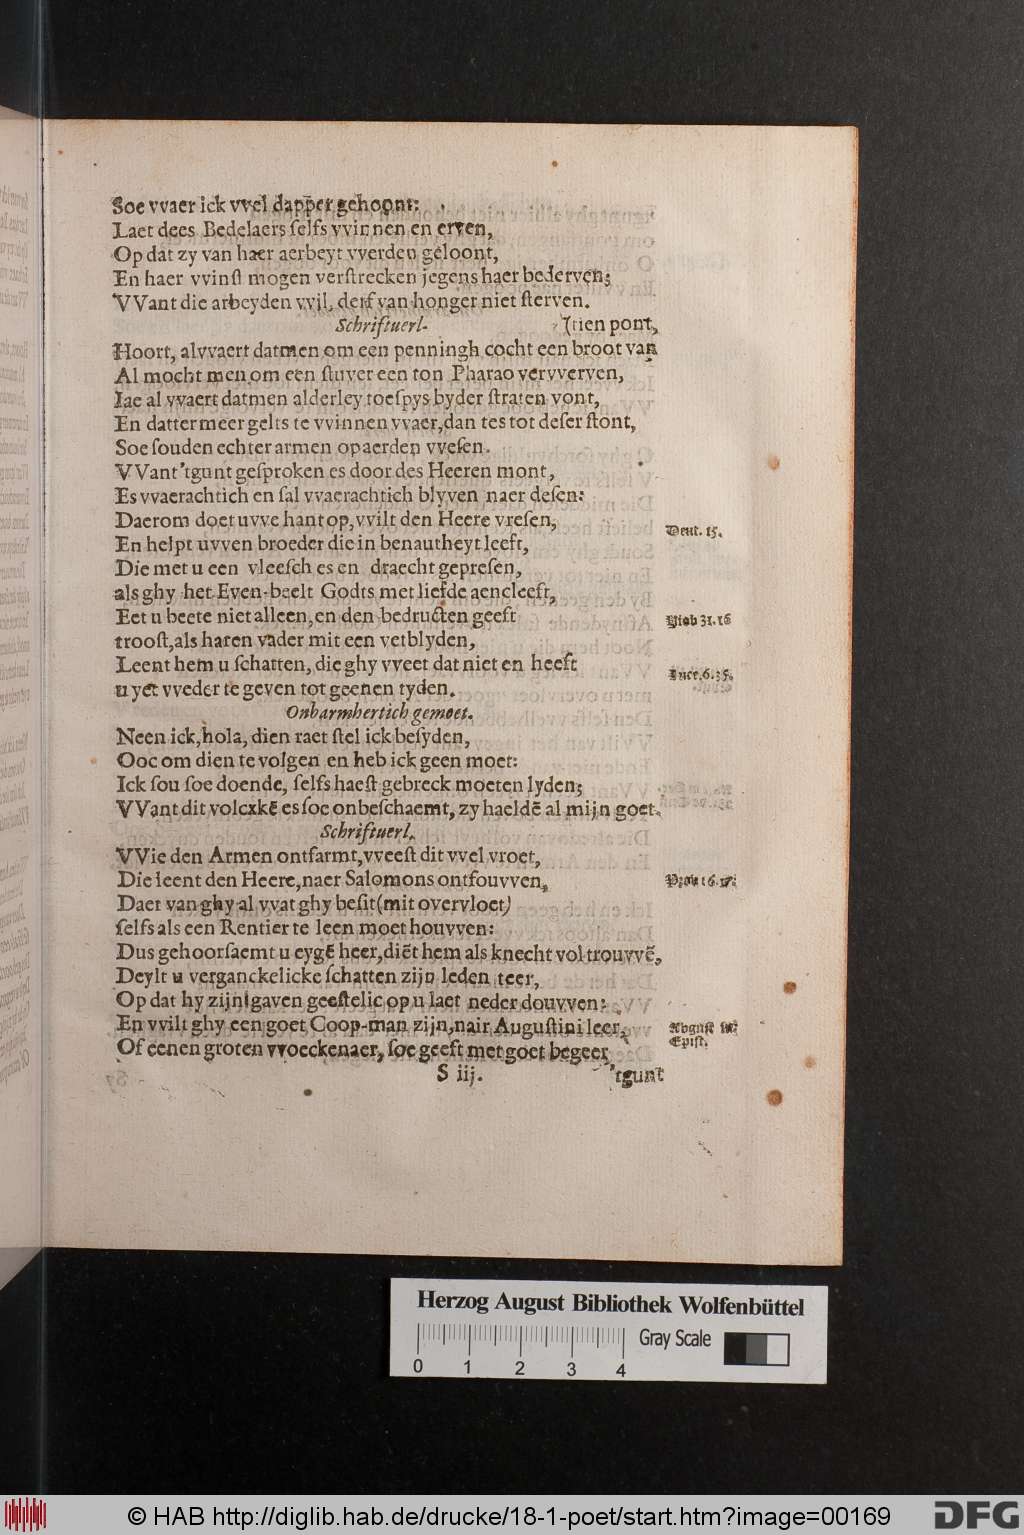 Soe vvaer ick vvel dapper gehoont:
Laet dees Bedelaers ſelfs vvinnen en erven,
Op dat zy van haer aerbeyt vverden geloont,
En haer vvinſt mogen verſtrecken jegens haer bederven;
VVant die arbeyden vvil, derf van honger niet ſterven.
Schriftuerl.
(tien pont,
Hoort, alvvaert datmen om een penningh cocht een broot van
Al mocht men om een ſtuver een ton Pharao vervverven,
Iae al vvaert datmen alderley toeſpys by der ſtraten vont,
En datter meer gelts te vvinnen vvaer, dan tes tot deſer ſtont,
Soe ſouden echter armen op aerden vveſen.
VVant 'tgunt geſproken es door des Heeren mont,
Es vvaerachtich en ſal vvaerachtich blyven naer deſen:
Daerom doet uvve hant op, vvilt den Heere vreſen,
Deut. 15.
En helpt uvven broeder die in benautheyt leeft,
Die met u een vleeſch es en draecht gepreſen,
als ghy het Even-beelt Godts met liefde aencleeft,
Eet u beete niet alleen, en den bedructen geeft
Hiob 31.16
trooſt, als haren vader mit een vetblyden,
Leent hem u ſchatten, die ghy vveet dat niet en heeft
Luce. 6.35.
u yet vveder te geven tot geenen tyden.
Onbarmhertich gemoet.
Neen ick, hola, dien raet ſtel ick beſyden,
Ooc om dien te volgen en heb ick geen moet:
Ick ſou ſoe doende, ſelfs haeſt gebreck moeten lyden;
VVant dit volcxkē es ſoe onbeſchaemt, zy haeldē al mijn goet.
Schriftuerl.
VVie den Armen ontfarmt, vveeſt dit vvel vroet,
Die leent den Heere, naer Salomons ontfouvven,
Daer van ghy al vvat ghy beſit (mit overvloet)
ſelfs als een Rentier te leen moet houvven:
Dus gehoorſaemt u eygē heer, diēt hem als knecht vol trouvvē,
Deylt u verganckelicke ſchatten zijn leden teer,
Op dat hy zijn gaven geeſtelic op u laet neder douvven:
En vvilt ghy een goet Coop-man zijn, nair Auguſtini leer,
Epiſt.
Of eenen groten vvoeckenaer, ſoe geeft met goet begeer
S iij.
'tgunt
Herzog August Bibliothek Wolfenbüttel
Gray Scale
0 1 2 3 4
© HAB http://diglib.hab.de/drucke/18-1-poet/start.htm?image=00169
DFG